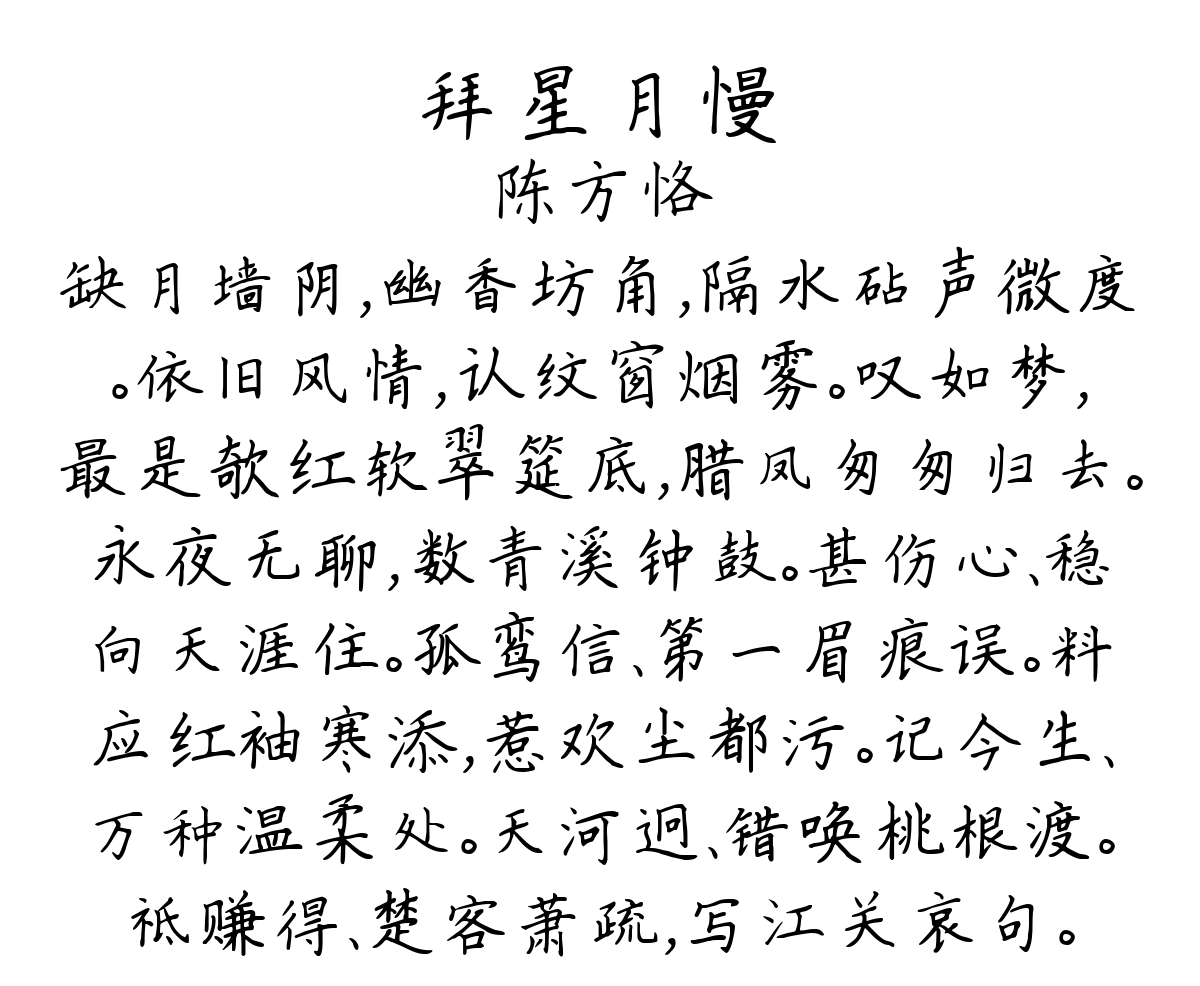 拜星月慢
陈方恪
缺月墙阴,幽香坊角,隔水砧声微度
。依旧风情,认纹窗烟雾。叹如梦,
最是欹红软翠筵底,腊凤匆匆归去。
永夜无聊,数青溪钟鼓。甚伤心、稳
向天涯住。孤鸾信、第一眉痕误。料
应红袖寒添,惹欢尘都污。记今生、
万种温柔处。天河迥、错唤桃根渡。
祗赚得、楚客萧疏,写江关哀句。